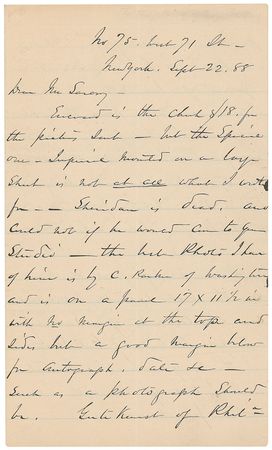 No 75. West 71 St -
New York. Sept 22. 88
Dear Mr Sarony -
Enclosed is the check $18. for
the pictures sent - but the Special
one - Imperial mounted on a large
Sheet is not at all what I want
for - - Sheridan is dead, and
could not if he would come to your
Studio - the best Photo I have
of him is by C. Parker of Washington
and is on a panel 17 X 11 1/2 in
with no margin at the top and
sides but a good margin below
for autograph, date &c -
Such as a photograph should
be. Gutekunst of Phil-